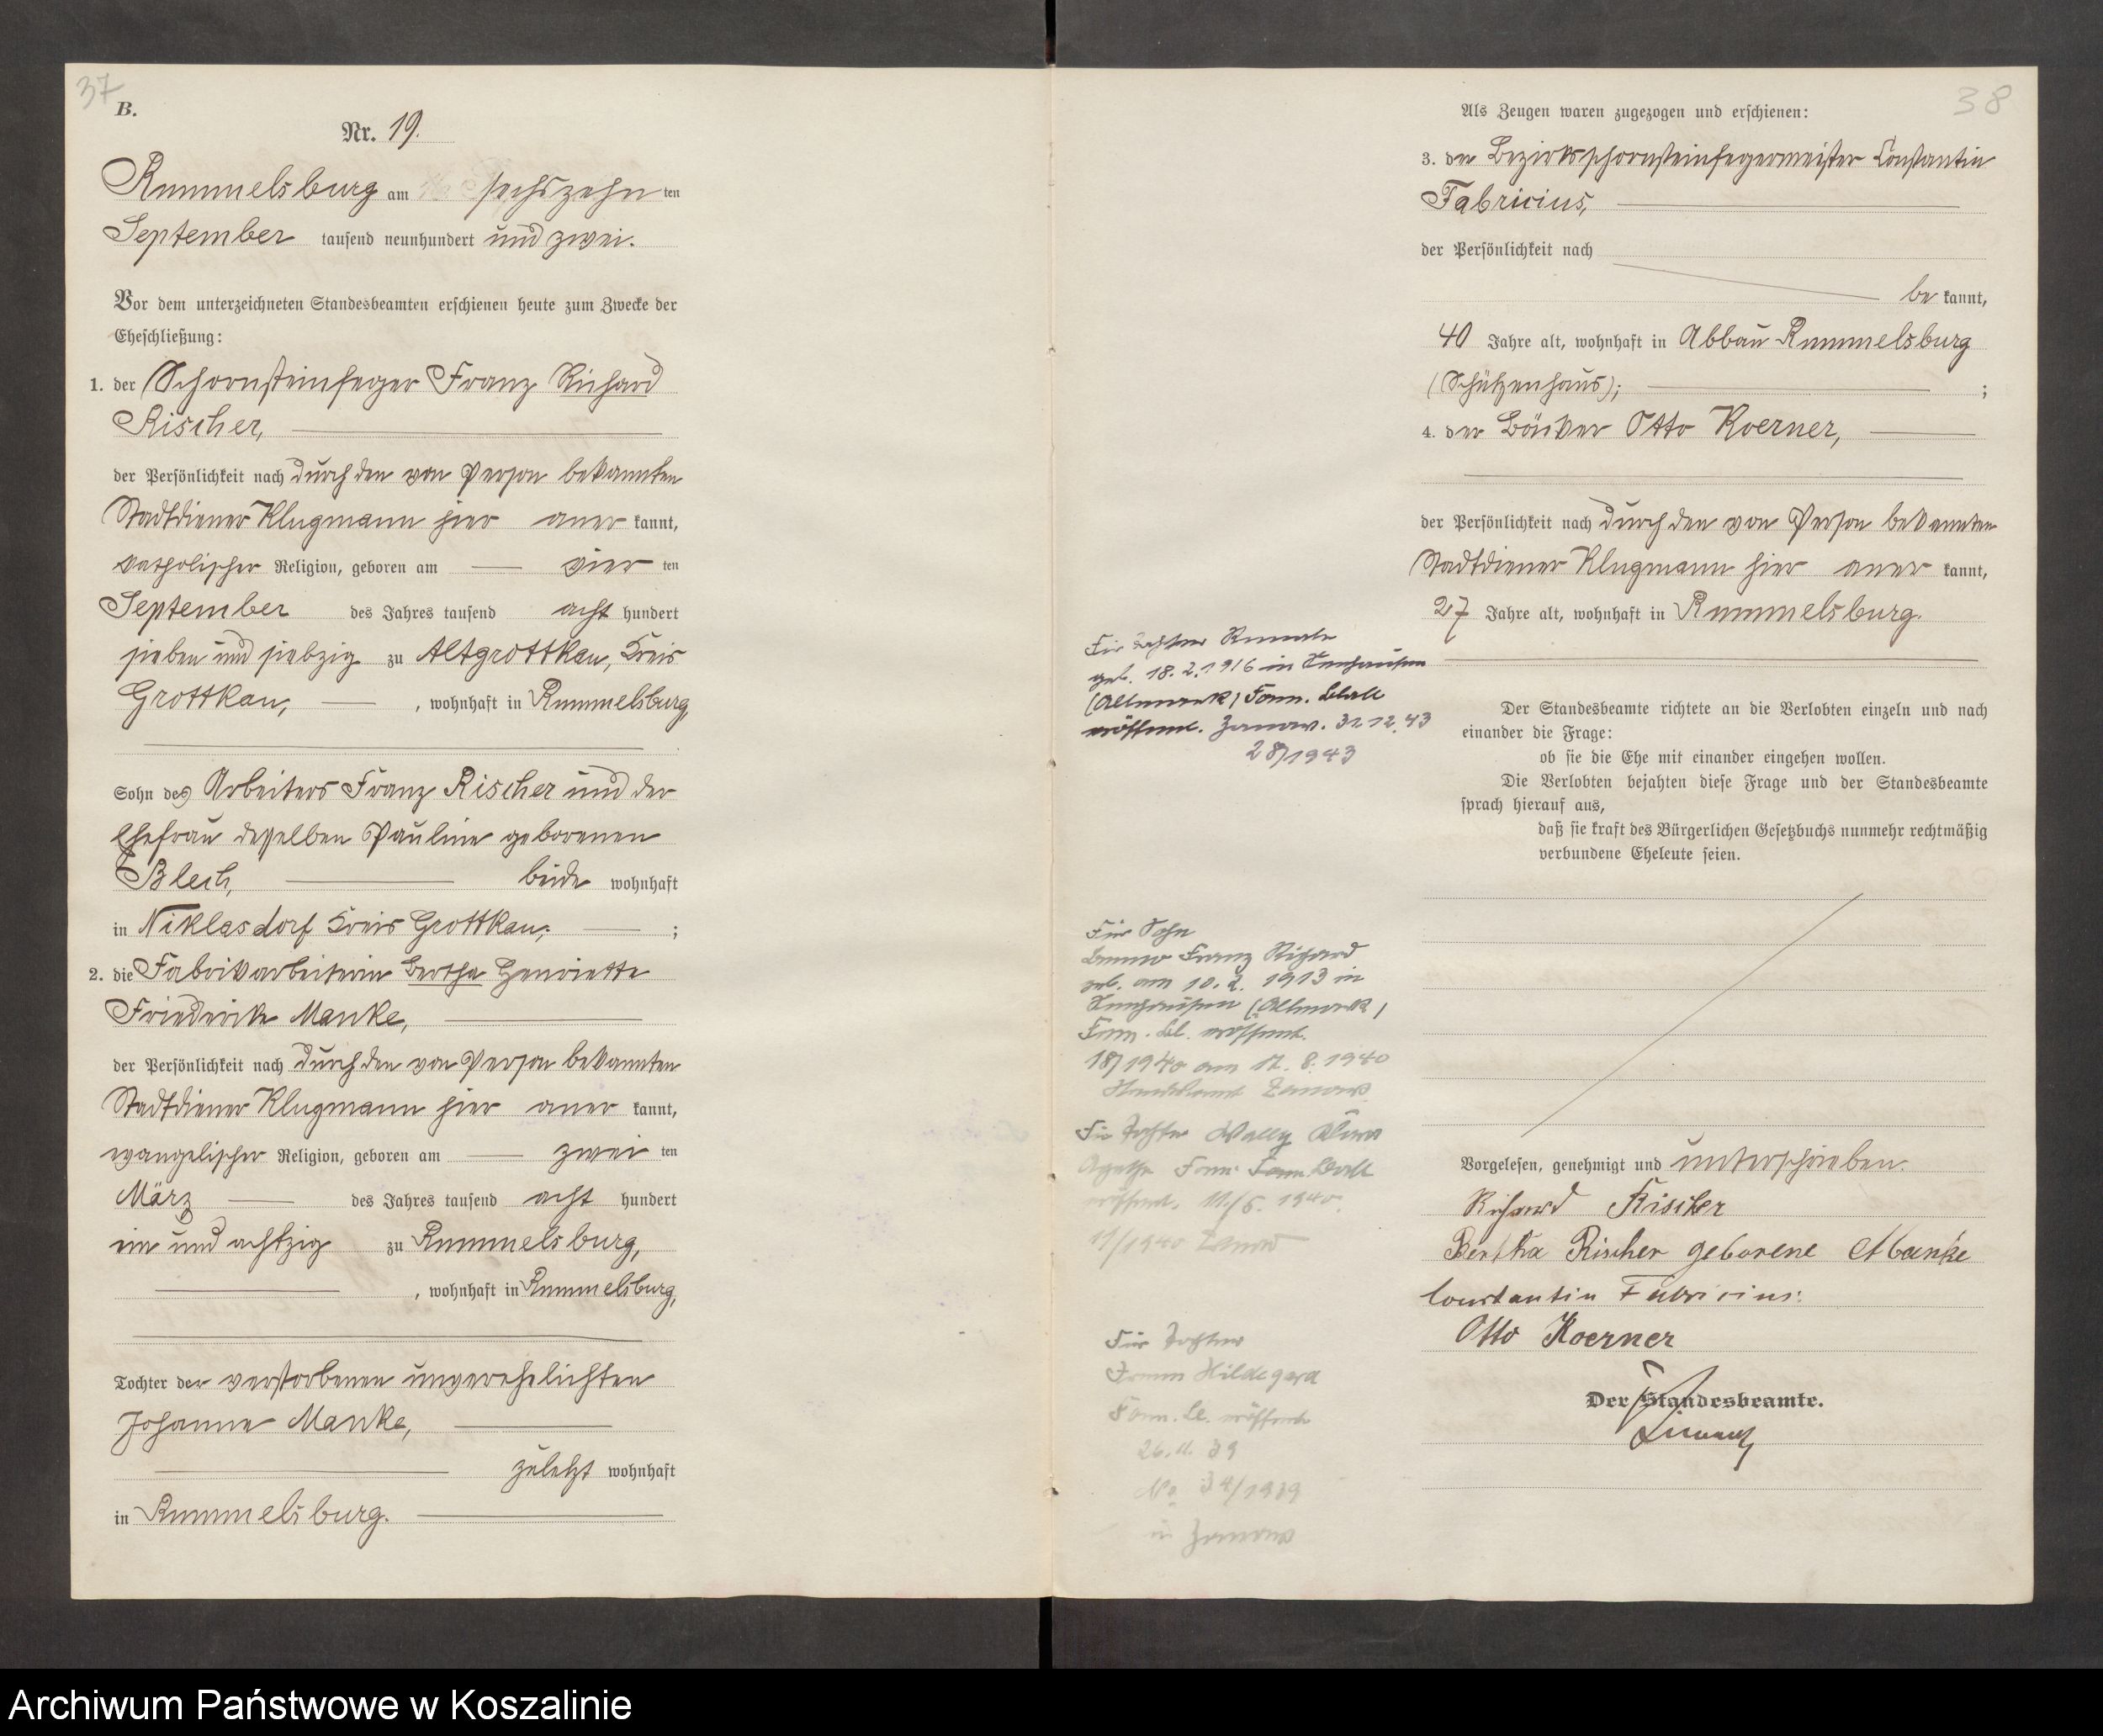 37
B.
Nr. 19.
Rummelsburg am sechszehn ten
September tausend neunhundert und zwei.
Vor dem unterzeichneten Standesbeamten erschienen heute zum Zwecke der
Eheschließung:
1. der Schornsteinfeger Franz Richard
Rischer,
der Persönlichkeit nach durch den von Person bekannten
Stadtdiener Klugmann hier aner kannt,
katholischer Religion, geboren am vier ten
September des Jahres tausend acht hundert
sieben und siebzig zu Altgrottkau, Kreis
Grottkau, , wohnhaft in Rummelsburg,
Sohn des Arbeiters Franz Rischer und der
Ehefrau desselben Pauline geborenen
Blech, beide wohnhaft
in Niklasdorf Kreis Grottkau; ;
2. die Fabrikarbeiterin Bertha Henriette
Friederike Manke,
der Persönlichkeit nach durch den von Person bekannten
Stadtdiener Klugmann hier aner kannt,
evangelischer Religion, geboren am zwei ten
März des Jahres tausend acht hundert
ein und achtzig zu Rummelsburg,
, wohnhaft in Rummelsburg,
Tochter der verstorbenen unverehelichten
Johanne Manke,
zuletzt wohnhaft
in Rummelsburg.
38
Als Zeugen waren zugezogen und erschienen:
3. der Bezirksschornsteinfegermeister Constantin
Fabricius,
der Persönlichkeit nach
be kannt,
40 Jahre alt, wohnhaft in Abbau Rummelsburg
(Schützenhaus); ;
4. der Bäcker Otto Koerner,
der Persönlichkeit nach durch den von Person bekannten
Stadtdiener Klugmann hier aner kannt,
27 Jahre alt, wohnhaft in Rummelsburg.
Der Standesbeamte richtete an die Verlobten einzeln und nach
einander die Frage:
ob sie die Ehe mit einander eingehen wollen.
Die Verlobten bejahten diese Frage und der Standesbeamte
sprach hierauf aus,
daß sie kraft des Bürgerlichen Gesetzbuchs nunmehr rechtmäßig
verbundene Eheleute seien.
Vorgelesen, genehmigt und unterschrieben.
Richard Rischer
Bertha Rischer geborene Manke
Constantin Fabricius.
Otto Koerner
Der Standesbeamte.
Für Tochter
geb. 18.2.1916 in
(Altmark) Fam.
eröffnet. Zanow. 31.12.43
28/1943
Für Sohn
Benno Franz Richard
geb. am 10.2. 1913 in
(Altmark)
Fam. Bl. eröffnet.
18/1940 am 12.8.1940
Standesamt Zanow
Für Tochter Wally Klara
Agathe Fam.
eröffnet. 11./6. 1940.
11/1940 Zanow
Für Tochter
Hildegard
Fam. Bl. eröffnet
26.11.39
No 34/1939
in Zanow
Archiwum Państwowe w Koszalinie